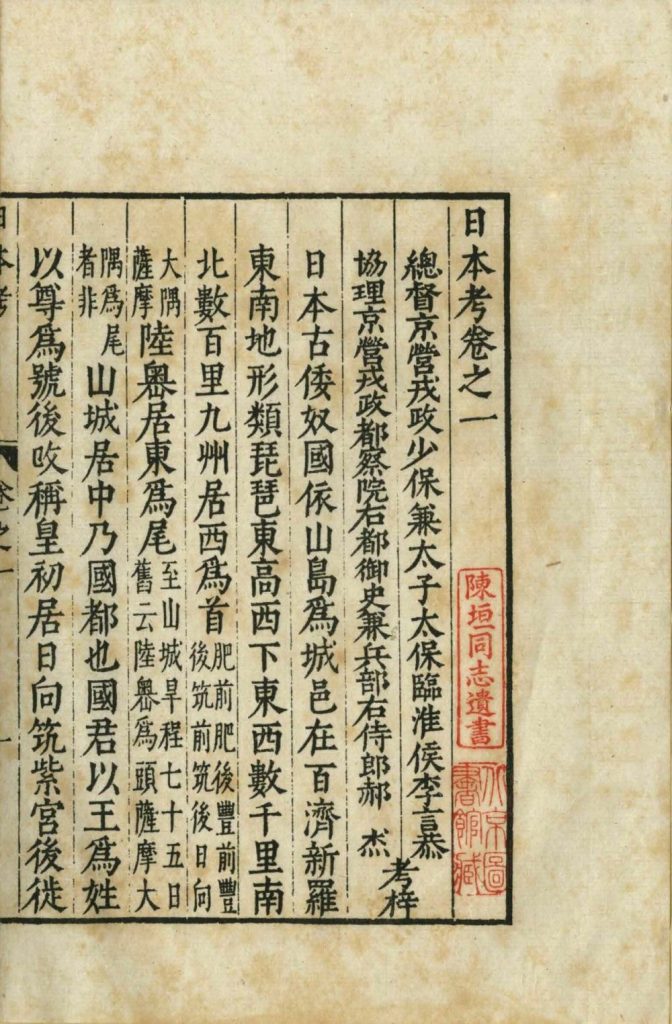 日本考卷之一
陳垣同志遺書
北京圖書館藏
總督京營戎政少保兼太子太保臨淮侯李言恭
協理京營戎政都察院右都御史兼兵部右侍郎郝 杰
考梓
日本古倭奴國依山島爲城邑在百濟新羅
東南地形類琵琶東高西下東西數千里南
北數百里九州居西爲首肥前肥後豐前豐後筑前筑後日向
大隅薩摩陸奧居東爲尾至山城旱程七十五日舊云陸奧爲頭薩摩大
隅爲尾者非山城居中乃國都也國君以王爲姓
以尊爲號後改稱皇初居日向筑紫宮後徙
日本考 卷之一 一